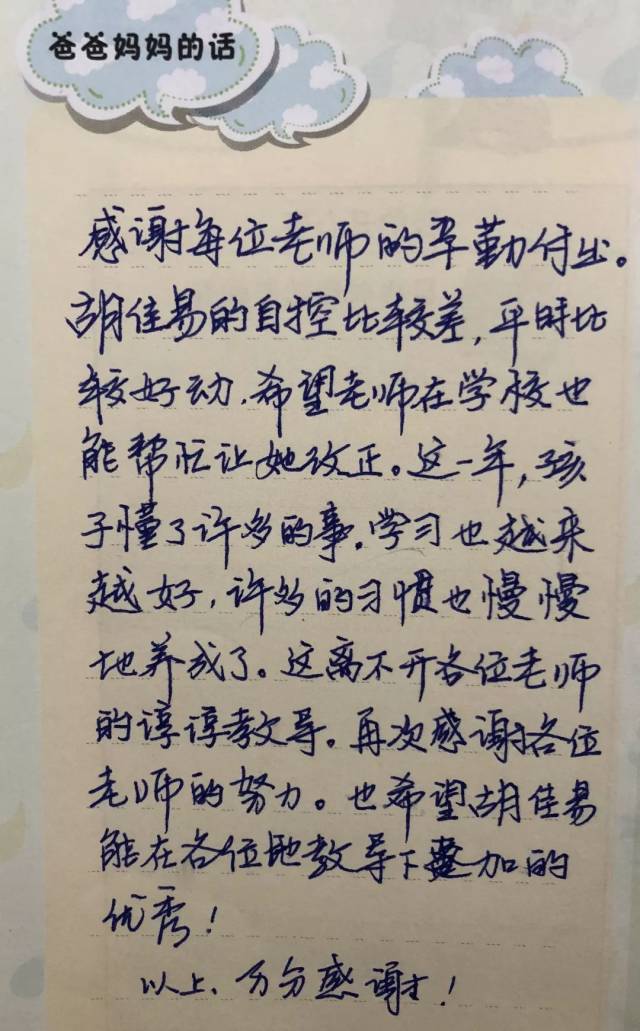 爸爸妈妈的话
感谢每位老师的辛勤付出。
胡佳易的自控比较差，平时比
较好动，希望老师在学校也
能帮忙让她改正。这一年，孩
子懂了许多的事。学习也越来
越好，许多的习惯也慢慢
地养成了。这离不开各位老师
的谆谆教导。再次感谢各位
老师的努力。也希望胡佳易
能在各位地教导下加的
优秀！
以上、万分感谢！